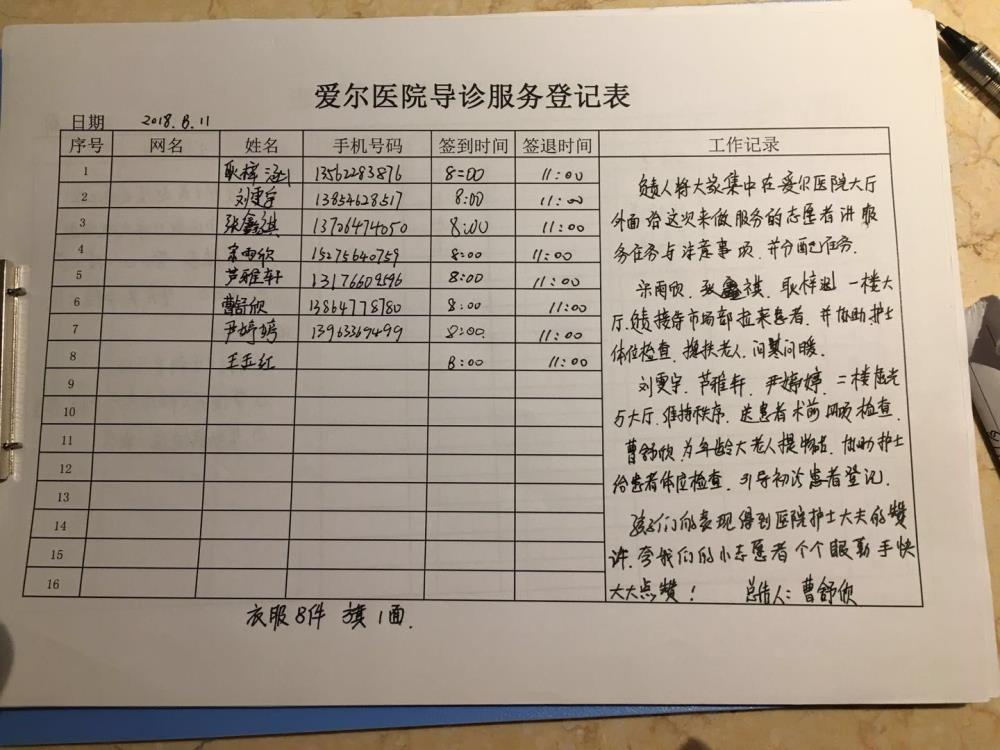 爱尔医院导诊服务登记表
日期 2018.8.11
序号 网名 姓名 手机号码 签到时间 签退时间 工作记录
1 耿梓涵 13562283876 8:00 11:00
2 刘雯宇 13854628517 8:00 11:00
3 张鑫祺 13726474050 8:00 11:00
4 宋雨欣 15275640759 8:00 11:00
5 芦雅轩 13176609596 8:00 11:00
6 曹舒欣 13864778780 8:00 11:00
7 尹婷婷 13963369499 8:00 11:00
8 王玉红 8:00 11:00
9
10
11
12
13
14
15
16
负责人将大家集中在爱尔医院大厅
外面给这次来做服务的志愿者讲服
务任务与注意事项,并分配任务.
宋雨欣.张鑫祺.耿梓涵 一楼大
厅.负责接待市场部拉来患者.并协助护士
体位检查.搀扶老人.问寒问暖.
刘雯宇.芦雅轩.尹婷婷.二楼
大厅.维持秩序.送患者术前四项检查.
曹舒欣.为年龄大老人提物品.协助护士
给患者体位检查.引导初诊患者登记.
孩子们的表现得到医院护士大夫的赞
许.夸我们的小志愿者个个眼勤手快
大大点赞! 总结人:曹舒欣
衣服8件 旗1面.